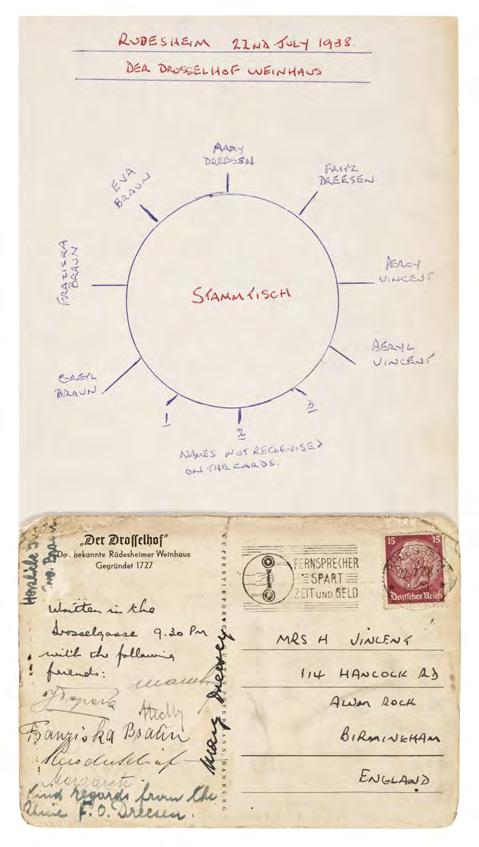 RUDESHEIM 22ND JULY 1938
DER DROSSELHOF WEINHAUS
MARY
DREESEN
FRITZ
DREESEN
EVA
BRAUN
PERCY
VINCENT
FRAZISKA
BRAUN
STAMMTISCH
BERYL
VINCENT
GRETL
BRAUN
1
2
3
NAMES NOT RECOGNISED
ON THE CARDS.
"Der Drosselhof"
Das bekannte Rüdesheimer Weinhaus
Gegründet 1727
FERNSPRECHER
SPART
ZEIT UND GELD
15 15
Deutsches Reich
Written in the
Drosselgasse 9.30 PM
with the following
friends:
Franziska Braun
Margareth
Kind regards from the
Rhine F. O. Dreesen.
Mary Dreesen
MRS H VINCENT
114 HANCOCK RD
ALUM ROCK
BIRMINGHAM
ENGLAND